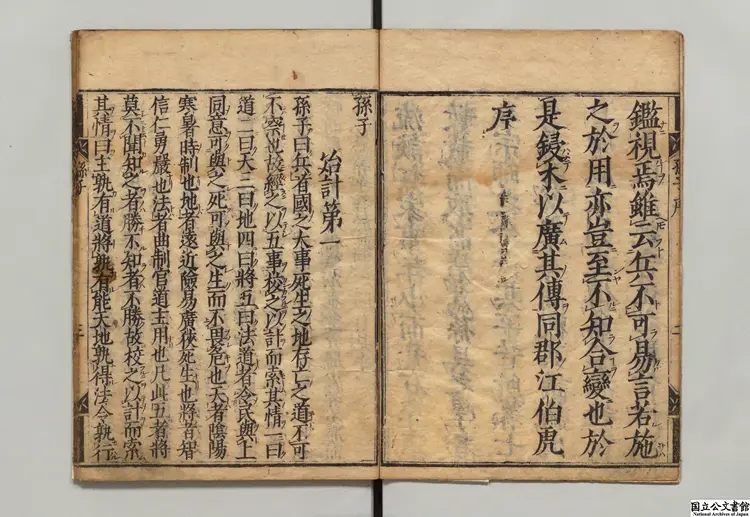 鑑視焉雖云兵不可易言若施
之於用亦豈至不知合變也於
是鋟木以廣其傳同郡江伯虎
序
孫子
始計第一
孫子曰兵者國之大事死生之地存亡之道不可
不察也故經之以五事校之以計而索其情一曰
道二曰天三曰地四曰將五曰法道者令民與上
同意可與之死可與之生而不畏危也天者陰陽
寒暑時制也地者遠近險易廣狹死生也將者智
信仁勇嚴也法者曲制官道主用也凡此五者將
莫不聞知之者勝不知者不勝故校之以計而索
其情曰主孰有道將孰有能天地孰得法令孰行
孫子
国立公文書館
National Archives of Japan